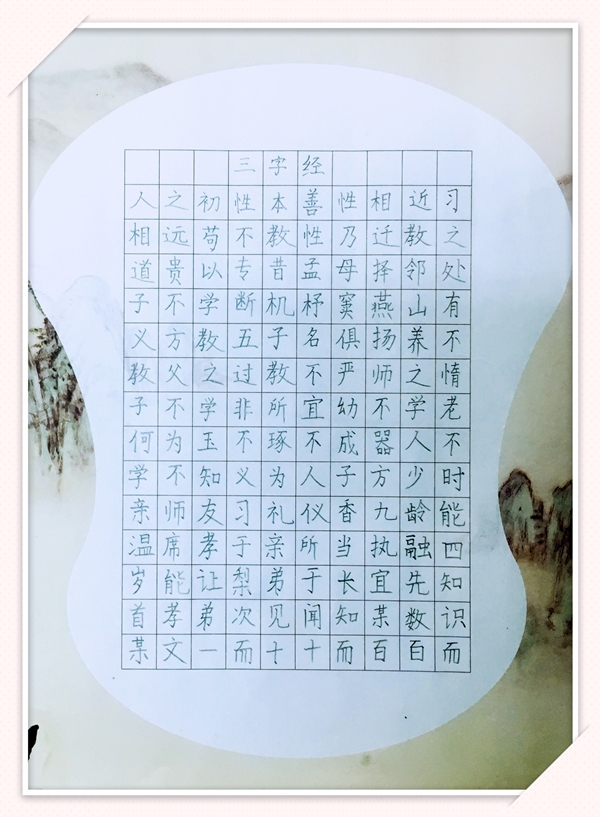 三字经
人之初性本善性相近习
相远苟不教性乃迁教之
道贵以专昔孟母择邻处
子不学断机杼窦燕山有
义方教五子名俱扬养不
教父之过教不严师之惰
子不学非所宜幼不学老
何为玉不琢不成器人不
学不知义为人子方少时
亲师友习礼仪香九龄能
温席孝于亲所当执融四
岁能让梨弟于长宜先知
首孝弟次见闻知某数识
某文一而十十而百百而